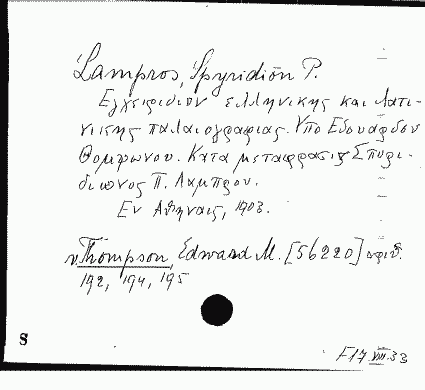 Lampros, Spyridōn P.
Εγχειριδιον ελληνικης και λατι-
νικης παλαιογραφιας. Υπο Εδουαρδου
Θομψωνου. Κατα μεταφρασιν Σπυρι-
διωνος Π. Λαμπρου.
Εν Αθηναις, 1903.
v. Thompson, Edward M. [56220] αριθ.
192, 194, 195
S
F17.VIII.33